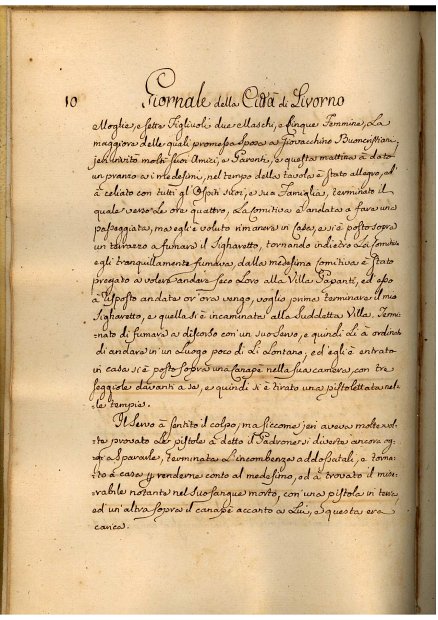 10 Giornale della Città di Livorno
Moglie, e sette Figliuoli due Maschi, e Cinque Femmine, La
maggiore delle quali promessa Sposa a Giovacchino Buoncristiani,
jeri invitò molti suoi Amici, e Parenti, e questa mattina à dato
un pranzo a i medesimi, nel tempo della tavola è stato allegro, ed
à celiato con tutti gl'Ospiti suoi, e sua Famiglia, terminato il
quale verso le ore quattro, La Comitiva è andata a fare una
passeggiata, ma egli è voluto rimanere in Casa, e si è posto sopra
un terrazzo a fumare il Sigharetto, tornando indietro La Comitiva
egli tranquillamente fumava, dalla medesima Comitiva è stato
pregato a volere andare seco Loro alla Villa Papanti, ed esso
à risposto andate or'ora vengo, voglio prima terminare il mio
Sigharetto, e quella si è incaminata alla suddetta Villa. Termi:
:nato di fumare à discorso con un suo Servo, e quindi Li à ordinato
di andare in un Luogo poco di Li Lontano, ed egli è entrato
in casa si è posto sopra una Canapè nella sua camera, con tre
seggiole davanti a se, e quindi si è tirato una pistolettata nel:
:le tempie.
Il Servo à sentito il colpo, ma siccome jeri aveva molte vol:
:te provato Le pistole à detto il Padrone si diverte ancora og:
:gi a Spararle, terminata L'incombenza addossatali, è torna:
:to a casa per renderne conto al medesimo, ed à trovato il mise:
:rabile notante nel Suo sangue morto, con una pistola in terra
ed un'altra sopra il canapè accanto a Lui, e questa era
carica.